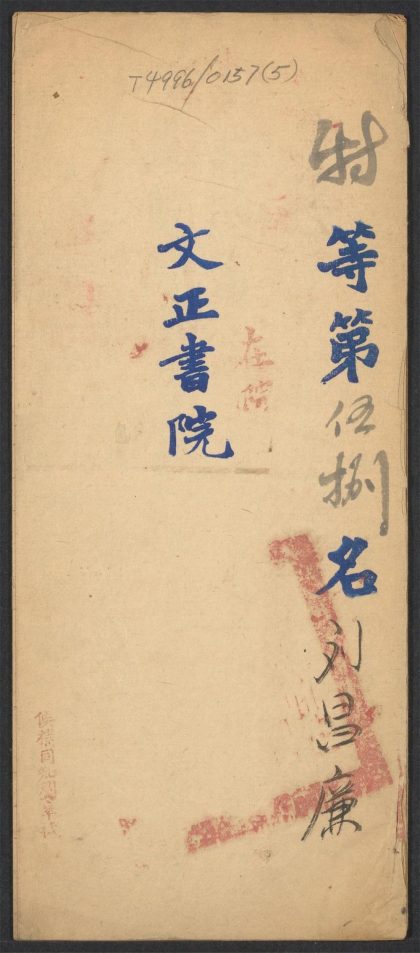 T4996/0157(5)
特等第伍捌名刘昌廉
文正書院
在院